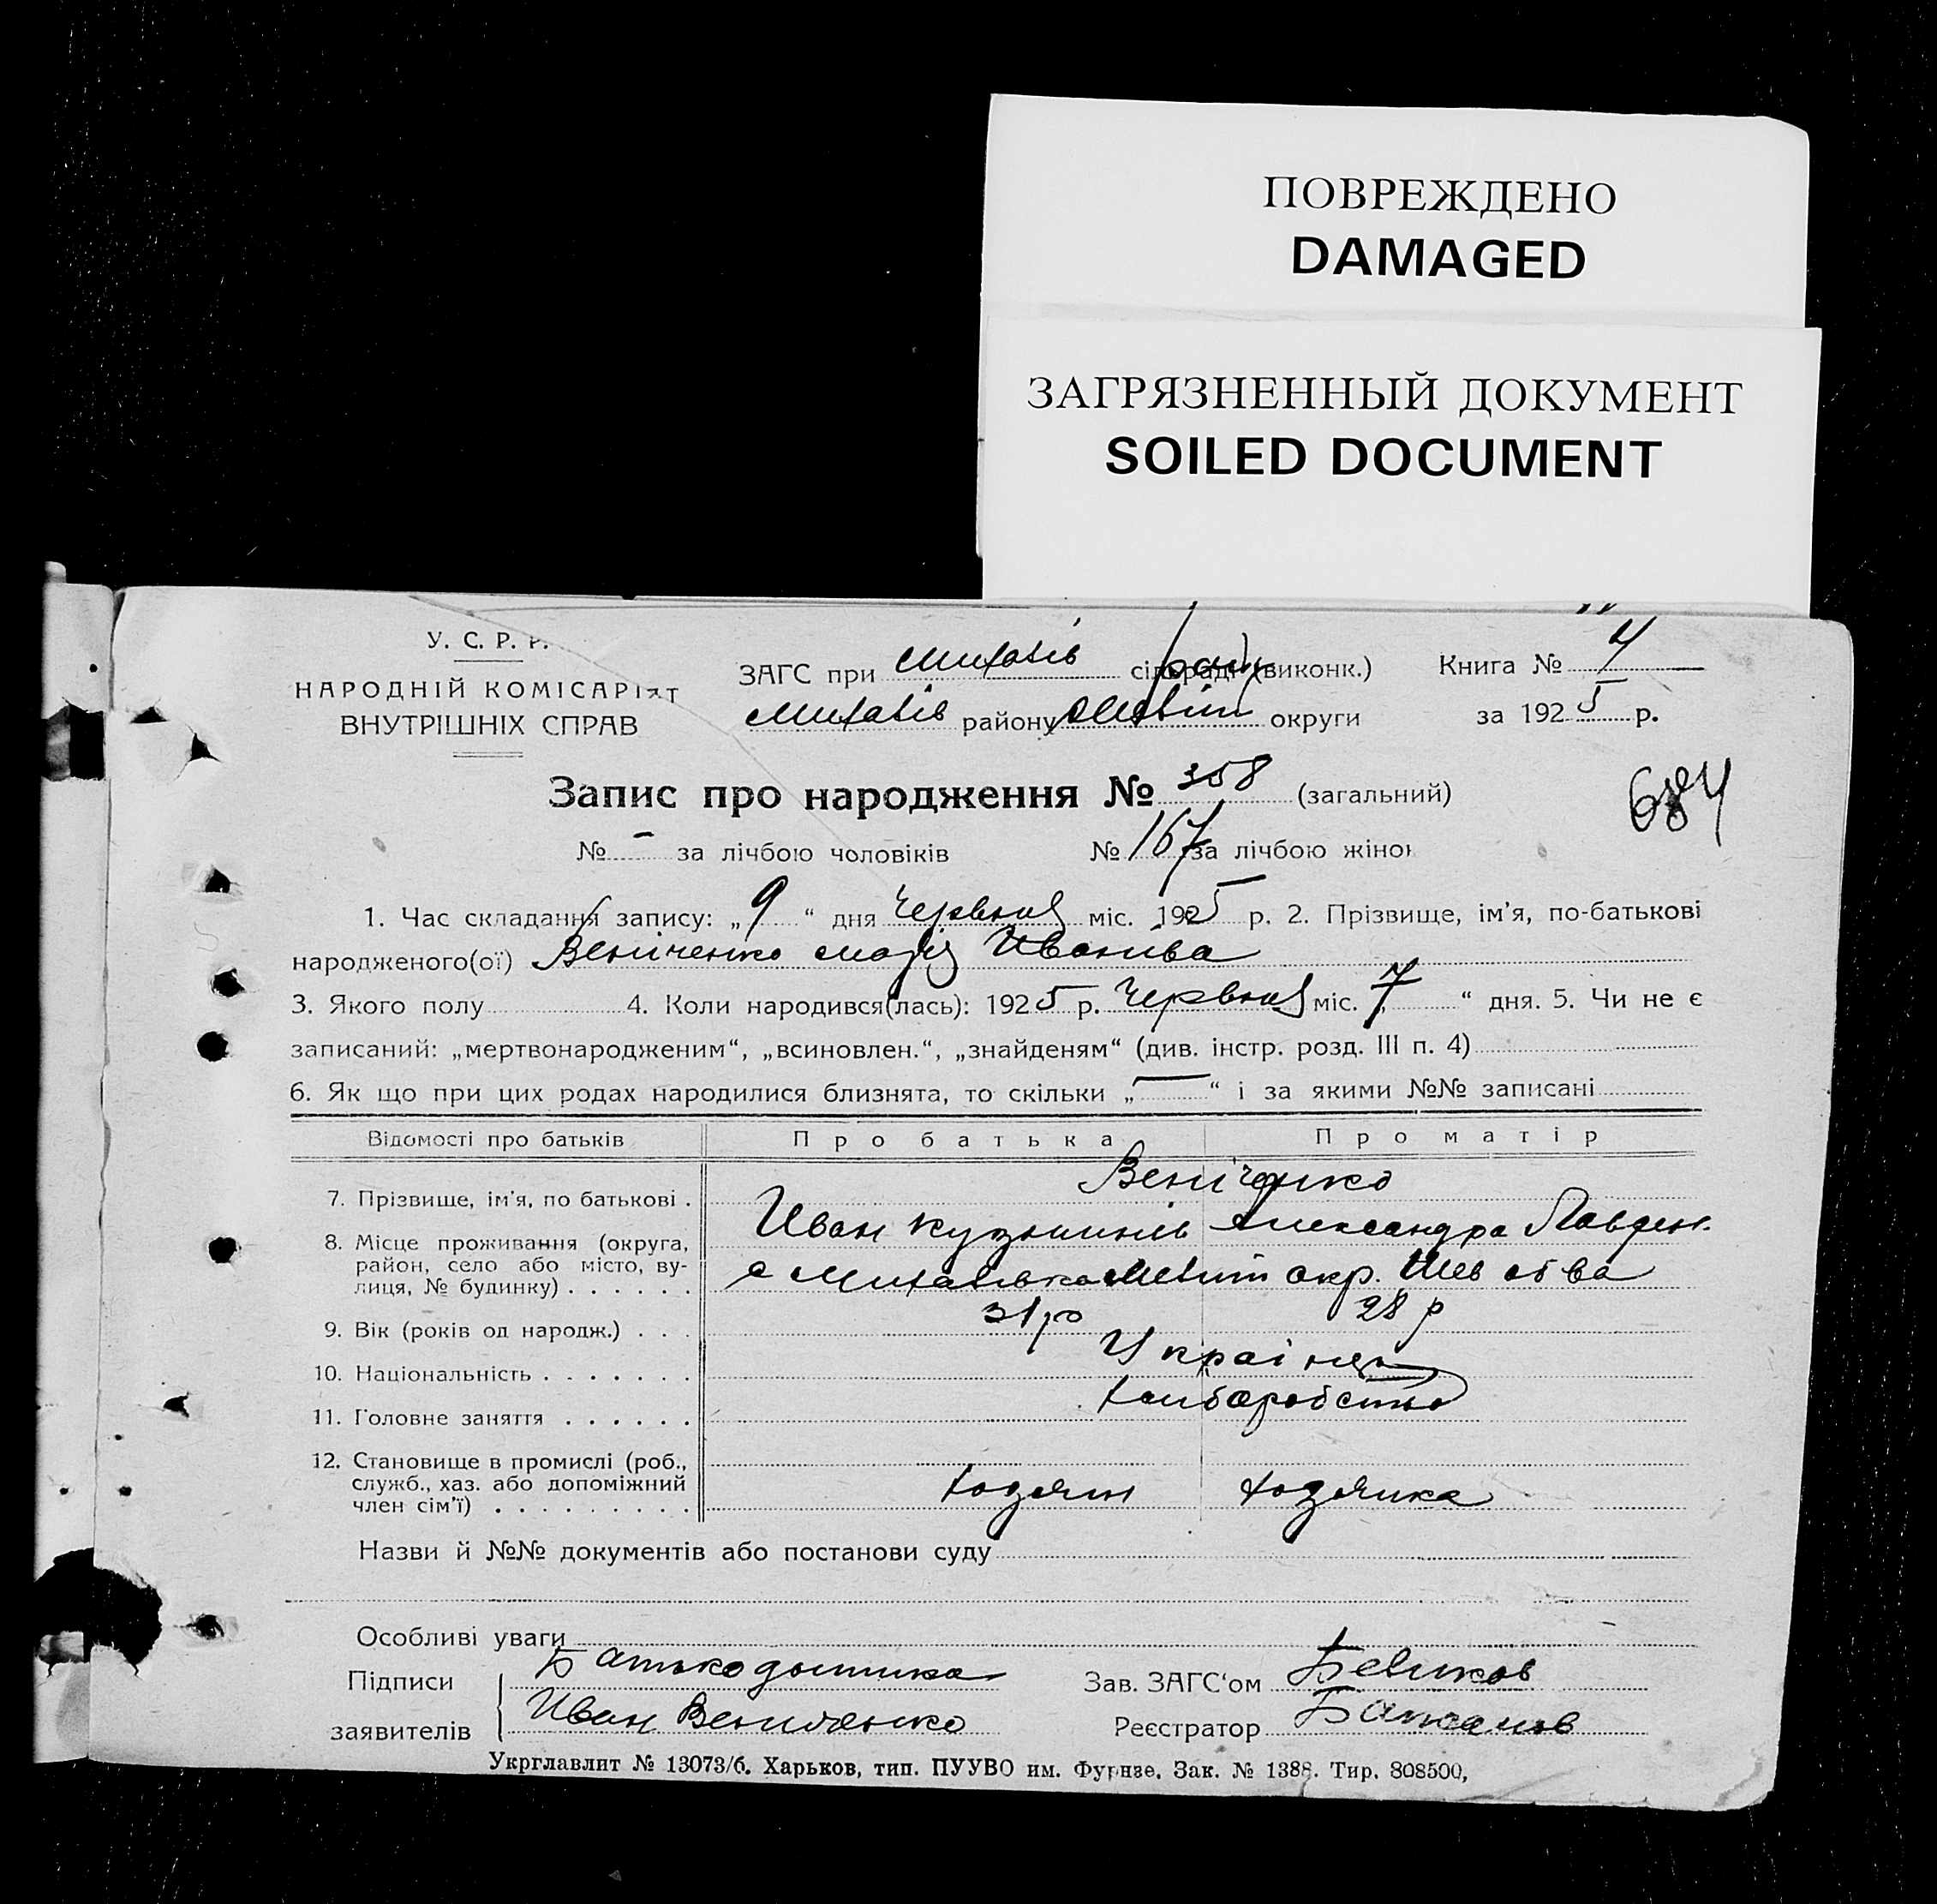 ПОВРЕЖДЕНО
DAMAGED
ЗАГРЯЗНЕННЫЙ ДОКУМЕНТ
SOILED DOCUMENT
У. С. Р. Р.
НАРОДНІЙ КОМІСАРІЯТ
ВНУТРІШНІХ СПРАВ
ЗАГС при Михайлів сільраді (виконк.) Книга № 4
Михайлів району округи за 1925 р.
Запис про народження № 358 (загальний)
684
№ - за лічбою чоловіків № 167 за лічбою жінок
1. Час складання запису: „9“ дня Червня міс. 1925 р. 2. Прізвище, ім'я, по-батькові
народженого(ої) Веніченко Марія Иванівна
3. Якого полу 4. Коли народився(лась): 1925 р. Червня міс. 7 “ дня. 5. Чи не є
записаний: „мертвонародженим“, „всиновлен.“, „знайденям“ (див. інстр. розд. III п. 4)
6. Як що при цих родах народилися близнята, то скільки „—“ і за якими №№ записані
Відомості про батьків Про батька Про матір
7. Прізвище, ім'я, по батькові . Веніченко
Иван Кузьмин Александра
8. Місце проживання (округа, район, село або місто, вулиця, № будинку) . . . . . . с Михайлівка окр.
9. Вік (років од народж.) . . . 31 р 28 р
10. Національність . . . . . . . Українец
11. Головне заняття . . . . . . хліборобство
12. Становище в промислі (роб., служб., хаз. або допоміжний член сім'ї) . . . . . . . . . хозяин хозяика
Назви й №№ документів або постанови суду
Особливі уваги
Підписи заявителів Батько
Иван Вениченко
Зав. ЗАГС'ом
Реєстратор
Укрглавлит № 13073/б. Харьков, тип. ПУУВО им. Фрунзе. Зак. № 1388. Тир. 808500,